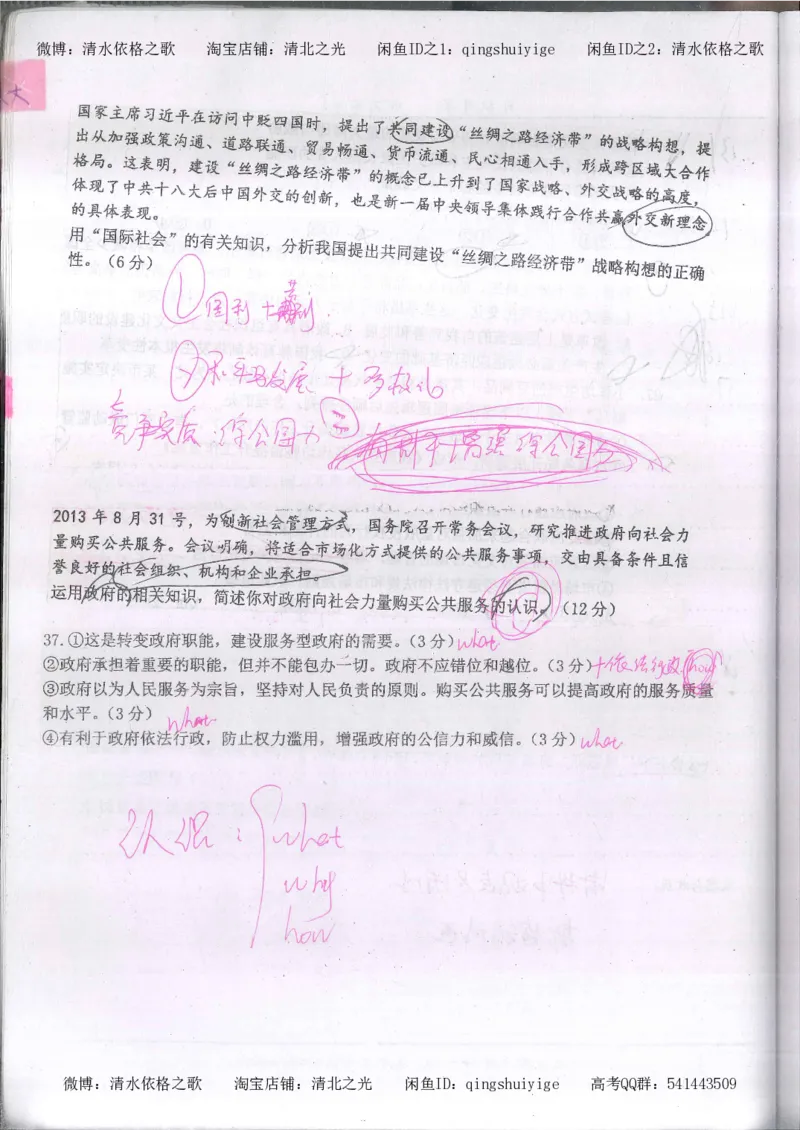 微博：清水依格之歌 淘宝店铺：清北之光 闲鱼ID之1：qingshuiyige 闲鱼ID之2：清水依格之歌
大
国家主席习近平在访问中贬四国时，提出了共同建设“丝绸之路经济带”的战略构想，提
出从加强政策沟通、道路联通、贸易畅通、货币流通、民心相通入手，形成跨区域大合作
格局。这表明，建设“丝绸之路经济带”的概念已上升到了国家战略、外交战略的高度，
体现了中共十八大后中国外交的创新，也是新一届中央领导集体践行合作共赢外交新理念
的具体表现。
用“国际社会”的有关知识，分析我国提出共同建设“丝绸之路经济带”战略构想的正确
性。（6分）
① 国利+共利
② 和平与发展 + 多极化
竞争实质 综合国力 三
有利于增强综合国力
2013 年 8 月 31 号，为创新社会管理方式，国务院召开常务会议，研究推进政府向社会力
量购买公共服务。会议明确，将适合市场化方式提供的公共服务事项，交由具备条件且信
誉良好的社会组织、机构和企业承担
运用政府的相关知识，简述你对政府向社会力量购买公共服务的认识。（12分）
37.①这是转变政府职能，建设服务型政府的需要。（3分）what
②政府承担着重要的职能，但并不能包办一切。政府不应错位和越位。（3分）+依法行政 how
③政府以为人民服务为宗旨，坚持对人民负责的原则。购买公共服务可以提高政府的服务质量
和水平。（3分） what
④有利于政府依法行政，防止权力滥用，增强政府的公信力和威信。（3分）what
认识： what
why
how
微博：清水依格之歌 淘宝店铺：清北之光 闲鱼ID：qingshuiyige 高考QQ群：541443509